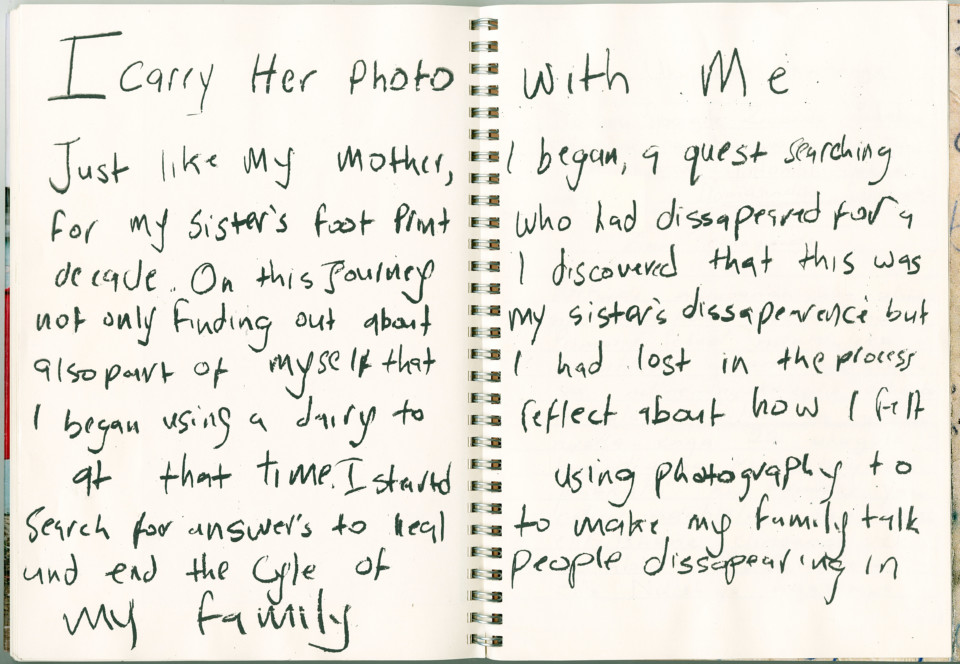 I carry Her Photo with Me
Just like My Mother, I began, a quest searching
for my sister's foot Print who had dissapeared for a
decade. On this Journey I discovered that this was
not only finding out about my sister's dissapearence but
also part of myself that I had lost in the process
I began using a dairy to reflect about how I felt
at that time. I started using photography to
Search for answer's to heal to make my family talk
and end the Cyle of people dissapearing in
my family